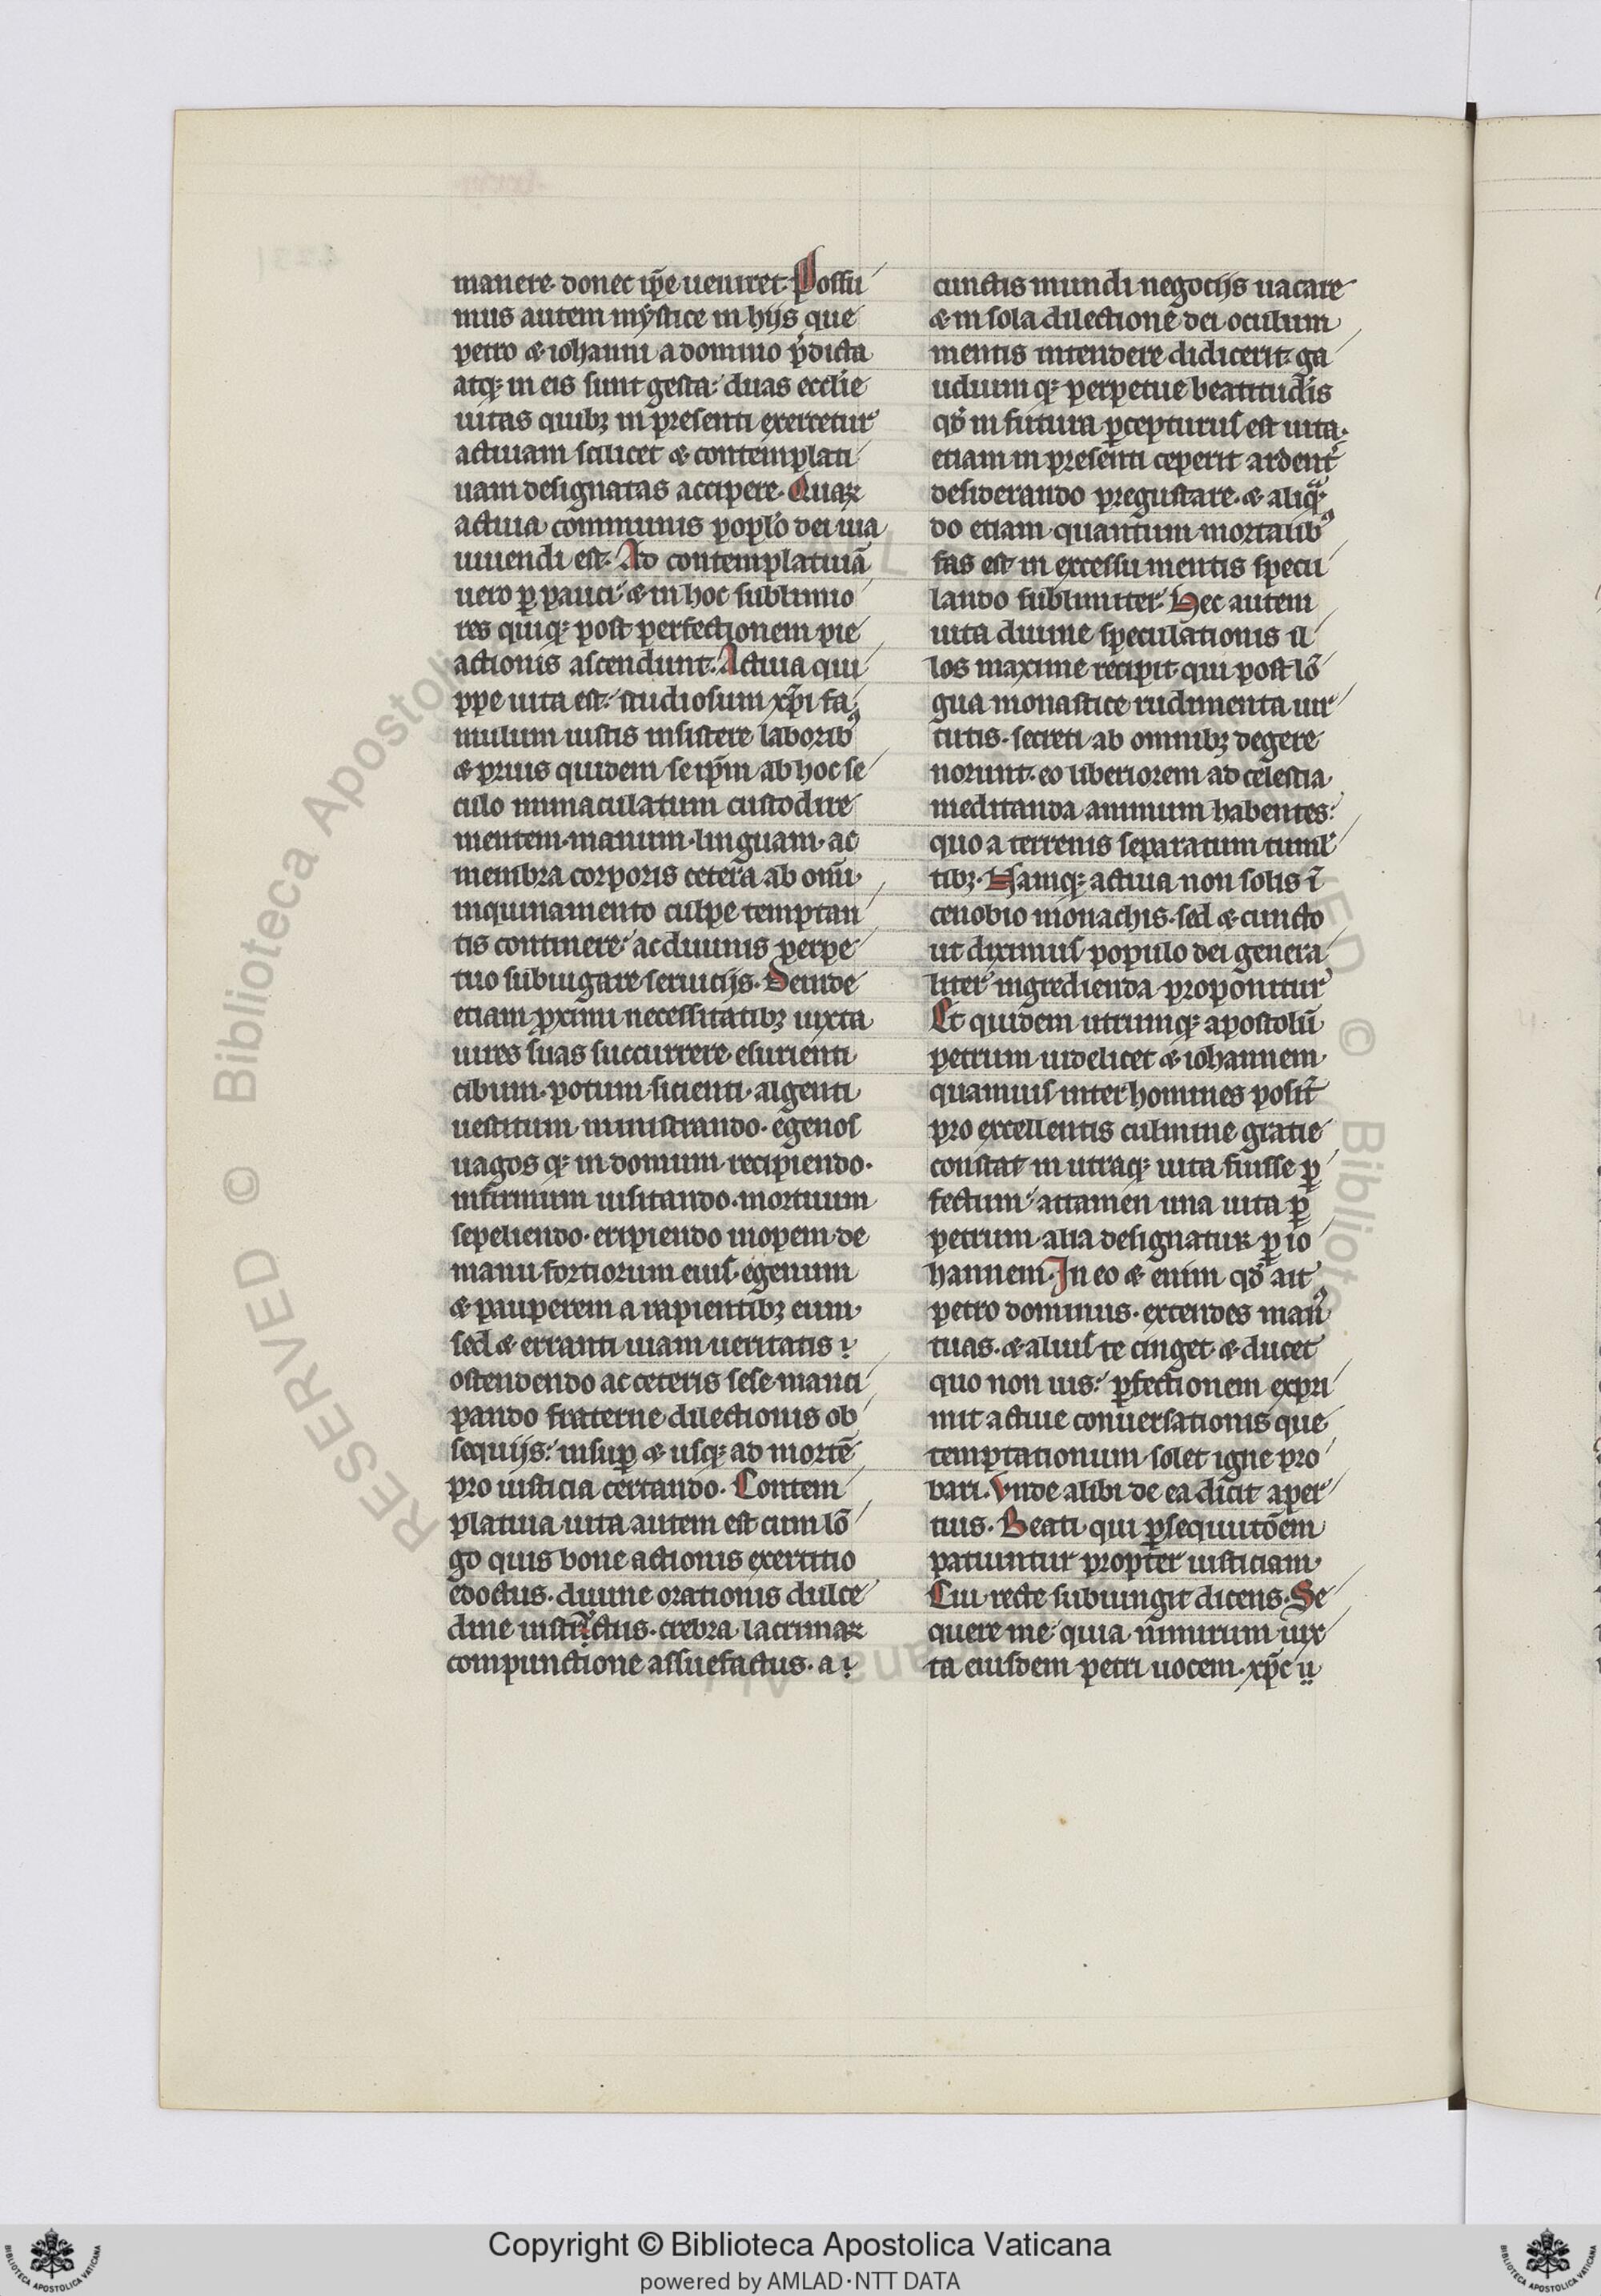 manere· donec ip̄e ueniret· Possu
mus autem mẏstice in hijs que
petro & iohanni a domino p̄dicta
atq; in eis sunt gesta: duas eccl̄ie
uitas quibȝ in presenti exercetur
actiuam scilicet & contemplati
uam designatas accipere· Quaꝝ
actiua communis poplo dei uia
uiuendi est· Ad contemplatiuā
uero ꝑpauci: & in hoc sublimio
res quiq; post perfectionem pie
actionis ascendunt· Actiua qui
ppe uita est: studiosum xp̄i fa
mulum iustis insistere laboribꝰ
& prius quidem se ip̄m ab hoc se
culo inmaculatum custodire
mentem· manum· linguam· ac
membra corporis cetera ab om̄i
inquinamento culpe temptan
tis continere: ac diuinis perpe
tuo subiugare seruicijs· Deinde
etiam ꝓximi necessitatibȝ iuxta
uires suas succurrere esurienti
cibum· potum sicienti· algenti
uestitum ministrando· egenos
uagos q; in domum recipiendo·
infirmum uisitando· mortuum
sepeliendo· eripiendo inopem de
manu fortiorum eius· egenum
& pauperem a rapientibȝ eum·
sed & erranti uiam ueritatis
ostendendo ac ceteris sese manci
pando fraterne dilectionis ob
sequijs: insuꝑ & usq; ad mortē
pro iusticia certando· Contem
platiua uita autem est cum lō
go quis bone actionis exertitio
edoctus· diuine orationis dulce
dine instructus· crebra lacrimaꝝ
compunctione assuefactus· a
cunctis mundi negocijs uacare
& in sola dilectione dei oculum
mentis intendere didicerit· ga
udium q; perpetue beatitudīs
qd̄ in futura ꝑcepturus est uita·
etiam in presenti ceperit ardent̄
desiderando pregustare· & aliqᷓ
do etiam quantum mortalibꝰ
fas est in excessu mentis specu
lando sublimiter· Hec autem
uita diuine speculationis il
los maxime recipit qui post lō
gua monastice rudimenta uir
tutis· secreti ab omnibȝ degere
norunt· eo liberiorem ad celestia
meditanda animum habentes:
quo a terrenis separatum tumĺ
tibȝ· Namq; actiua non solis ī
cenobio monachis· sed & cuncto
ut diximus populo dei genera
liter ingredienda proponitur
Et quidem utrumq; apostolū
petrum uidelicet & iohannem
quamuis inter homines posit̄
pro excellentis culmine gratie
constat in utraq; uita fuisse ꝑ
fectum: attamen una uita ꝑ
petrum alia designatur ꝑ io
hannem· In eo & enim qd̄ ait
petro dominus· extendes manꝰ
tuas· & alius te cinget & ducet
quo non uis: ꝑfectionem expri
mit actiue conuersationis que
temptationum solet igne pro
bari· Vnde alibi de ea dicit aper
tius· Beati qui ꝑsequutōem
patiuntur propter iusticiam·
Cui recte subiungit dicens· Se
quere me quia nimirum iux
ta eiusdem petri uocem· xp̄c
Copyright © Biblioteca Apostolica Vaticana
powered by AMLAD·NTT DATA